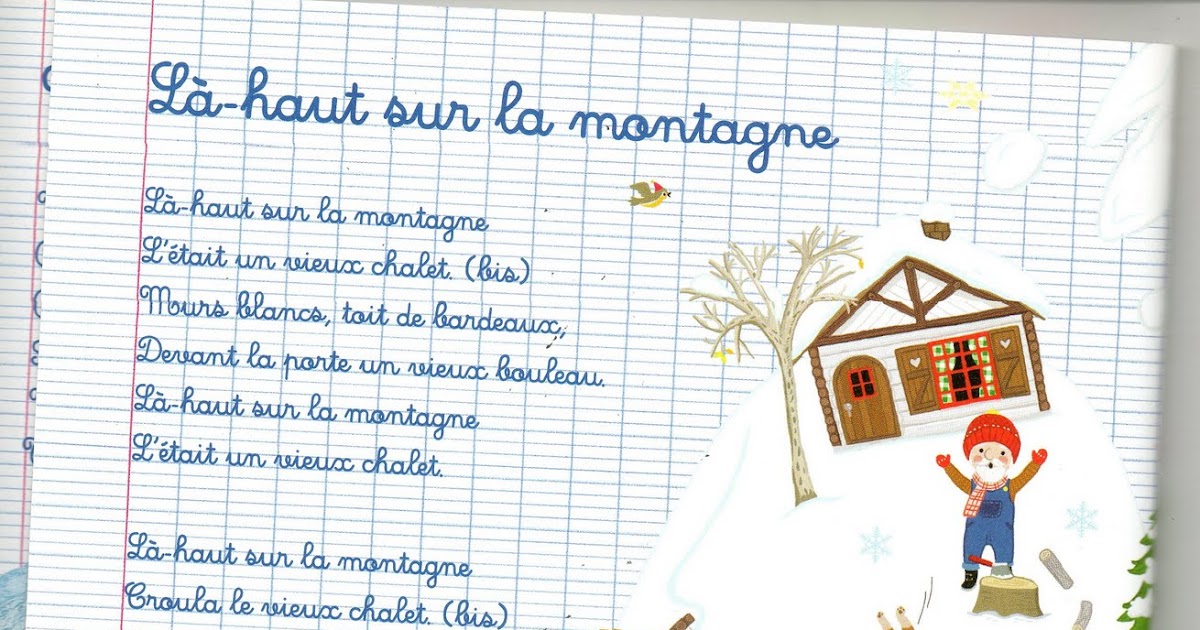 Là-haut sur la montagne
Là-haut sur la montagne
L'était un vieux chalet. (bis)
Murs blancs, toit de bardeaux,
Devant la porte un vieux bouleau.
Là-haut sur la montagne
L'était un vieux chalet.
Là-haut sur la montagne
Croula le vieux chalet. (bis)